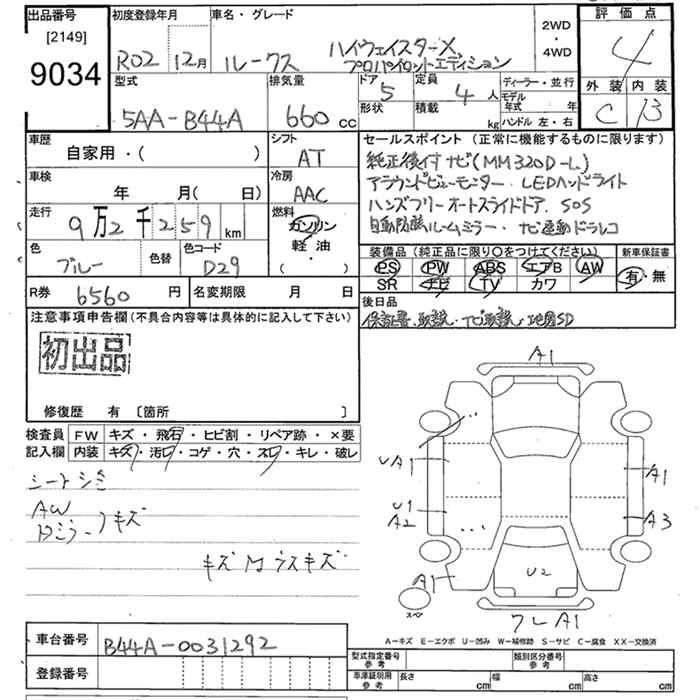 出品番号
[2149]
9034
初度登録年月
R02 12月
車名・グレード
ルークス
ハイウェイスターX
プロパイロットエディション
2WD
・
4WD
評価点
4
外装 内装
C B
型式
5AA-B44A
排気量
660 cc
ドア
5
定員
4 人
形状
積載
kg
ディーラー・並行
モデル
年式 年
ハンドル 左・右
車歴
自家用・( )
シフト
AT
車検
年 月( 日)
冷房
AAC
走行
9万2千259 km
燃料
ガソリン
軽油
・
( )
色
ブルー
色替
色コード
D29
R券 6560 円
名変期限 月 日
セールスポイント(正常に機能するものに限ります)
純正後付ナビ(MM320D-L)
アラウンドビューモニター・LEDヘッドライト
ハンズフリーオートスライドドア. SOS
自動防眩ルームミラー・ナビ連動ドラレコ
装備品(純正品に限り○をつけてください)
PS PW ABS エアB AW
SR ナビ TV カワ
新車保証書
有・無
後日品
保証書・取説・ナビ取説・地図SD
注意事項申告欄(不具合内容等は具体的に記入して下さい)
初出品
修復歴 有 [箇所 ]
検査員 FW キズ・飛石・ヒビ割・リペア跡・×要
記入欄 内装 キズ・汚レ・コゲ・穴・スレ・キレ・破レ
シートシミ
AW
ドミラー キズ
キズ M ラスキズ
A1
UA1
U1
A2
A1
A3
A1
U2
スペア
フレA1
A-キズ E-エクボ U-凹み W-補修跡 S-サビ C-腐食 XX-交換済
車台番号 B44A-0031292
登録番号
型式指定番号
参考
類別区分番号
参考
車庫証明用
参考
長さ cm 幅 cm 高さ cm